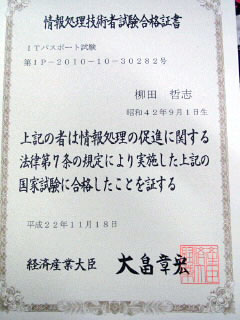 情報処理技術者試験合格証書
ITパスポート試験
第IP-2010-10-30282号
柳田 哲志
昭和42年9月1日生
上記の者は情報処理の促進に関する
法律第7条の規定により実施した上記の
国家試験に合格したことを証する
平成22年11月18日
経済産業大臣 大畠章宏